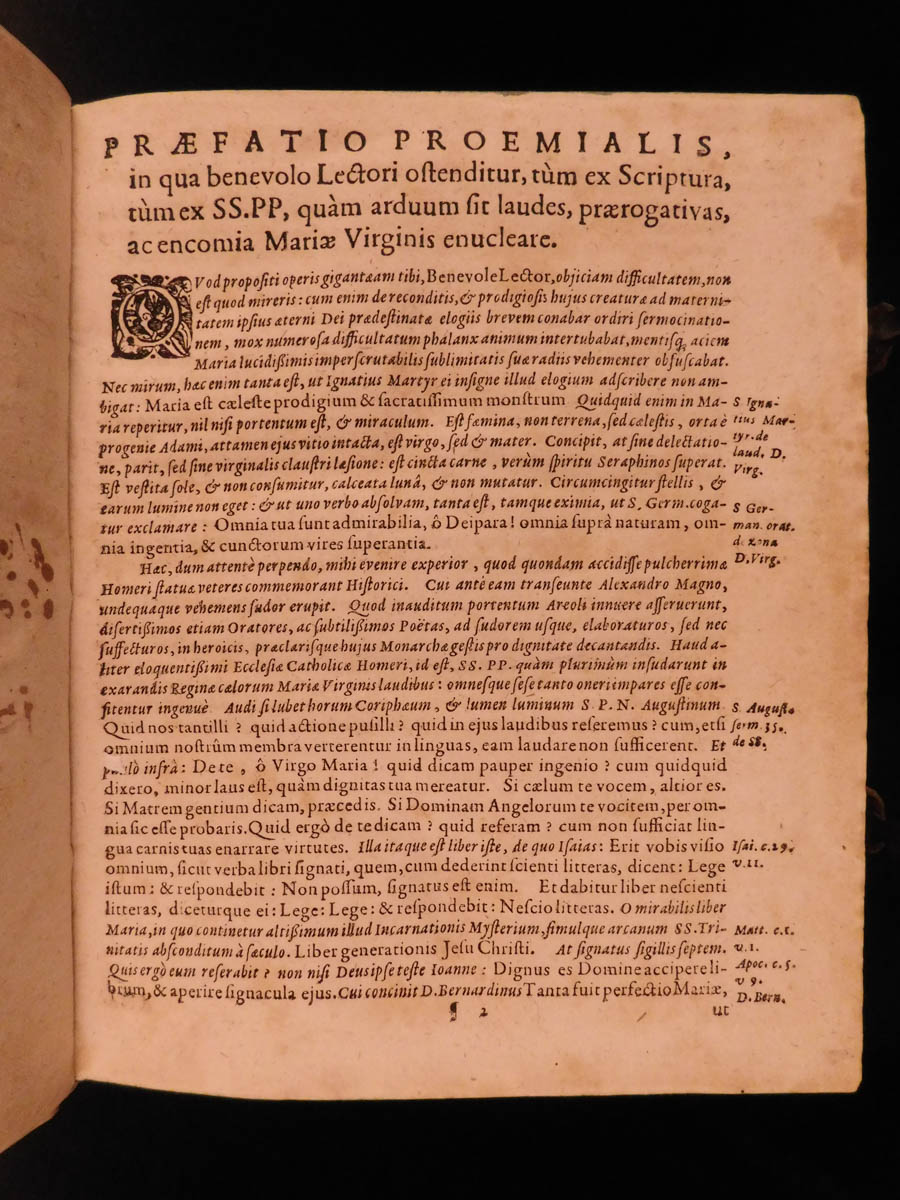 PRÆFATIO PROEMIALIS,
in qua benevolo Lectori ostenditur, tùm ex Scriptura,
tùm ex SS.PP, quàm arduum sit laudes, prærogativas,
ac encomia Mariæ Virginis enucleare.
QVod propositi operis gigantæam tibi, Benevole Lector, objiciam difficultatem, non
est quod mireris: cum enim de reconditis, & prodigiosis hujus creaturæ ad materni-
tatem ipsius æterni Dei prædestinatæ elogiis brevem conabar ordiri sermocinatio-
nem, mox numerosa difficultatum phalanx animum intertubabat, mentisq; aciem
Maria lucidissimis imperscrutabilis sublimitatis suæ radiis vehementer obfuscabat.
Nec mirum, hæc enim tanta est, ut Ignatius Martyr ei insigne illud elogium adscribere non am-
bigat: Maria est cæleste prodigium & sacratissimum monstrum Quidquid enim in Ma- S Igna-
ria reperitur, nil nisi portentum est, & miraculum. Est fæmina, non terrena, sed cælestis, orta è tius Mar-
progenie Adami, attamen ejus vitio intacta, est virgo, sed & mater. Concipit, at sine delectatio- tyr. de
ne, parit, sed sine virginalis claustri læsione: est cincta carne, verùm spiritu Seraphinos superat. laud. D.
Est vestita sole, & non consumitur, calceata lunâ, & non mutatur. Circumcingitur stellis, & Virg.
earum lumine non eget: & ut uno verbo absolvam, tanta est, tamque eximia, ut S. Germ. coga- S Ger-
tur exclamare: Omnia tua sunt admirabilia, ô Deipara! omnia suprà naturam, om- man. orat.
nia ingentia, & cunctorum vires superantia. de zona
Hæc, dum attentè perpendo, mihi evenire experior, quod quondam accidisse pulcherrimæ D. Virg.
Homeri statuæ veteres commemorant Historici. Cui antè eam transeunte Alexandro Magno,
undequaque vehemens sudor erupit. Quod inauditum portentum Areoli innuere asseruerunt,
disertissimos etiam Oratores, ac subtilissimos Poëtas, ad sudorem usque, elaboraturos, sed nec
suffecturos, in heroicis, præclarisque hujus Monarchæ gestis pro dignitate decantandis. Haud a-
liter eloquentissimi Ecclesiæ Catholicæ Homeri, id est, SS. PP. quàm plurimùm insudarunt in
exarandis Reginæ cælorum Mariæ Virginis laudibus: omnesque sese tanto oneri impares esse con-
fitentur ingenuè Audi si lubet horum Coriphæum, & lumen luminum S. P. N. Augustinum S. August.
Quid nos tantilli? quid actione pusilli? quid in ejus laudibus referemus? cum, etsi serm. 35.
omnium nostrûm membra verterentur in linguas, eam laudare non sufficerent. Et de SS.
paulò infrà: De te, ô Virgo Maria! quid dicam pauper ingenio? cum quidquid
dixero, minor laus est, quàm dignitas tua mereatur. Si cælum te vocem, altior es.
Si Matrem gentium dicam, præcedis. Si Dominam Angelorum te vocitem, per om-
nia sic esse probaris. Quid ergò de te dicam? quid referam? cum non sufficiat lin-
gua carnis tuas enarrare virtutes. Illa itaque est liber iste, de quo Isaias: Erit vobis visio Isai. c. 29.
omnium, sicut verba libri signati, quem, cum dederint scienti litteras, dicent: Lege v. 11.
istum: & respondebit: Non possum, signatus est enim. Et dabitur liber nescienti
litteras, diceturque ei: Lege: Lege: & respondebit: Nescio litteras. O mirabilis liber
Maria, in quo continetur altissimum illud Incarnationis Mysterium, simulque arcanum SS. Tri- Matt. c. 1.
nitatis absconditum à sæculo. Liber generationis Jesu Christi. At signatus sigillis septem. v. 1.
Quis ergò eum reserabit? non nisi Deus ipse teste Ioanne: Dignus es Domine accipere li- Apoc. c. 5.
brum, & aperire signacula ejus. Cui concinit D. Bernardinus Tanta fuit perfectio Mariæ, v 9.
D. Bern.
¶ 2 ut